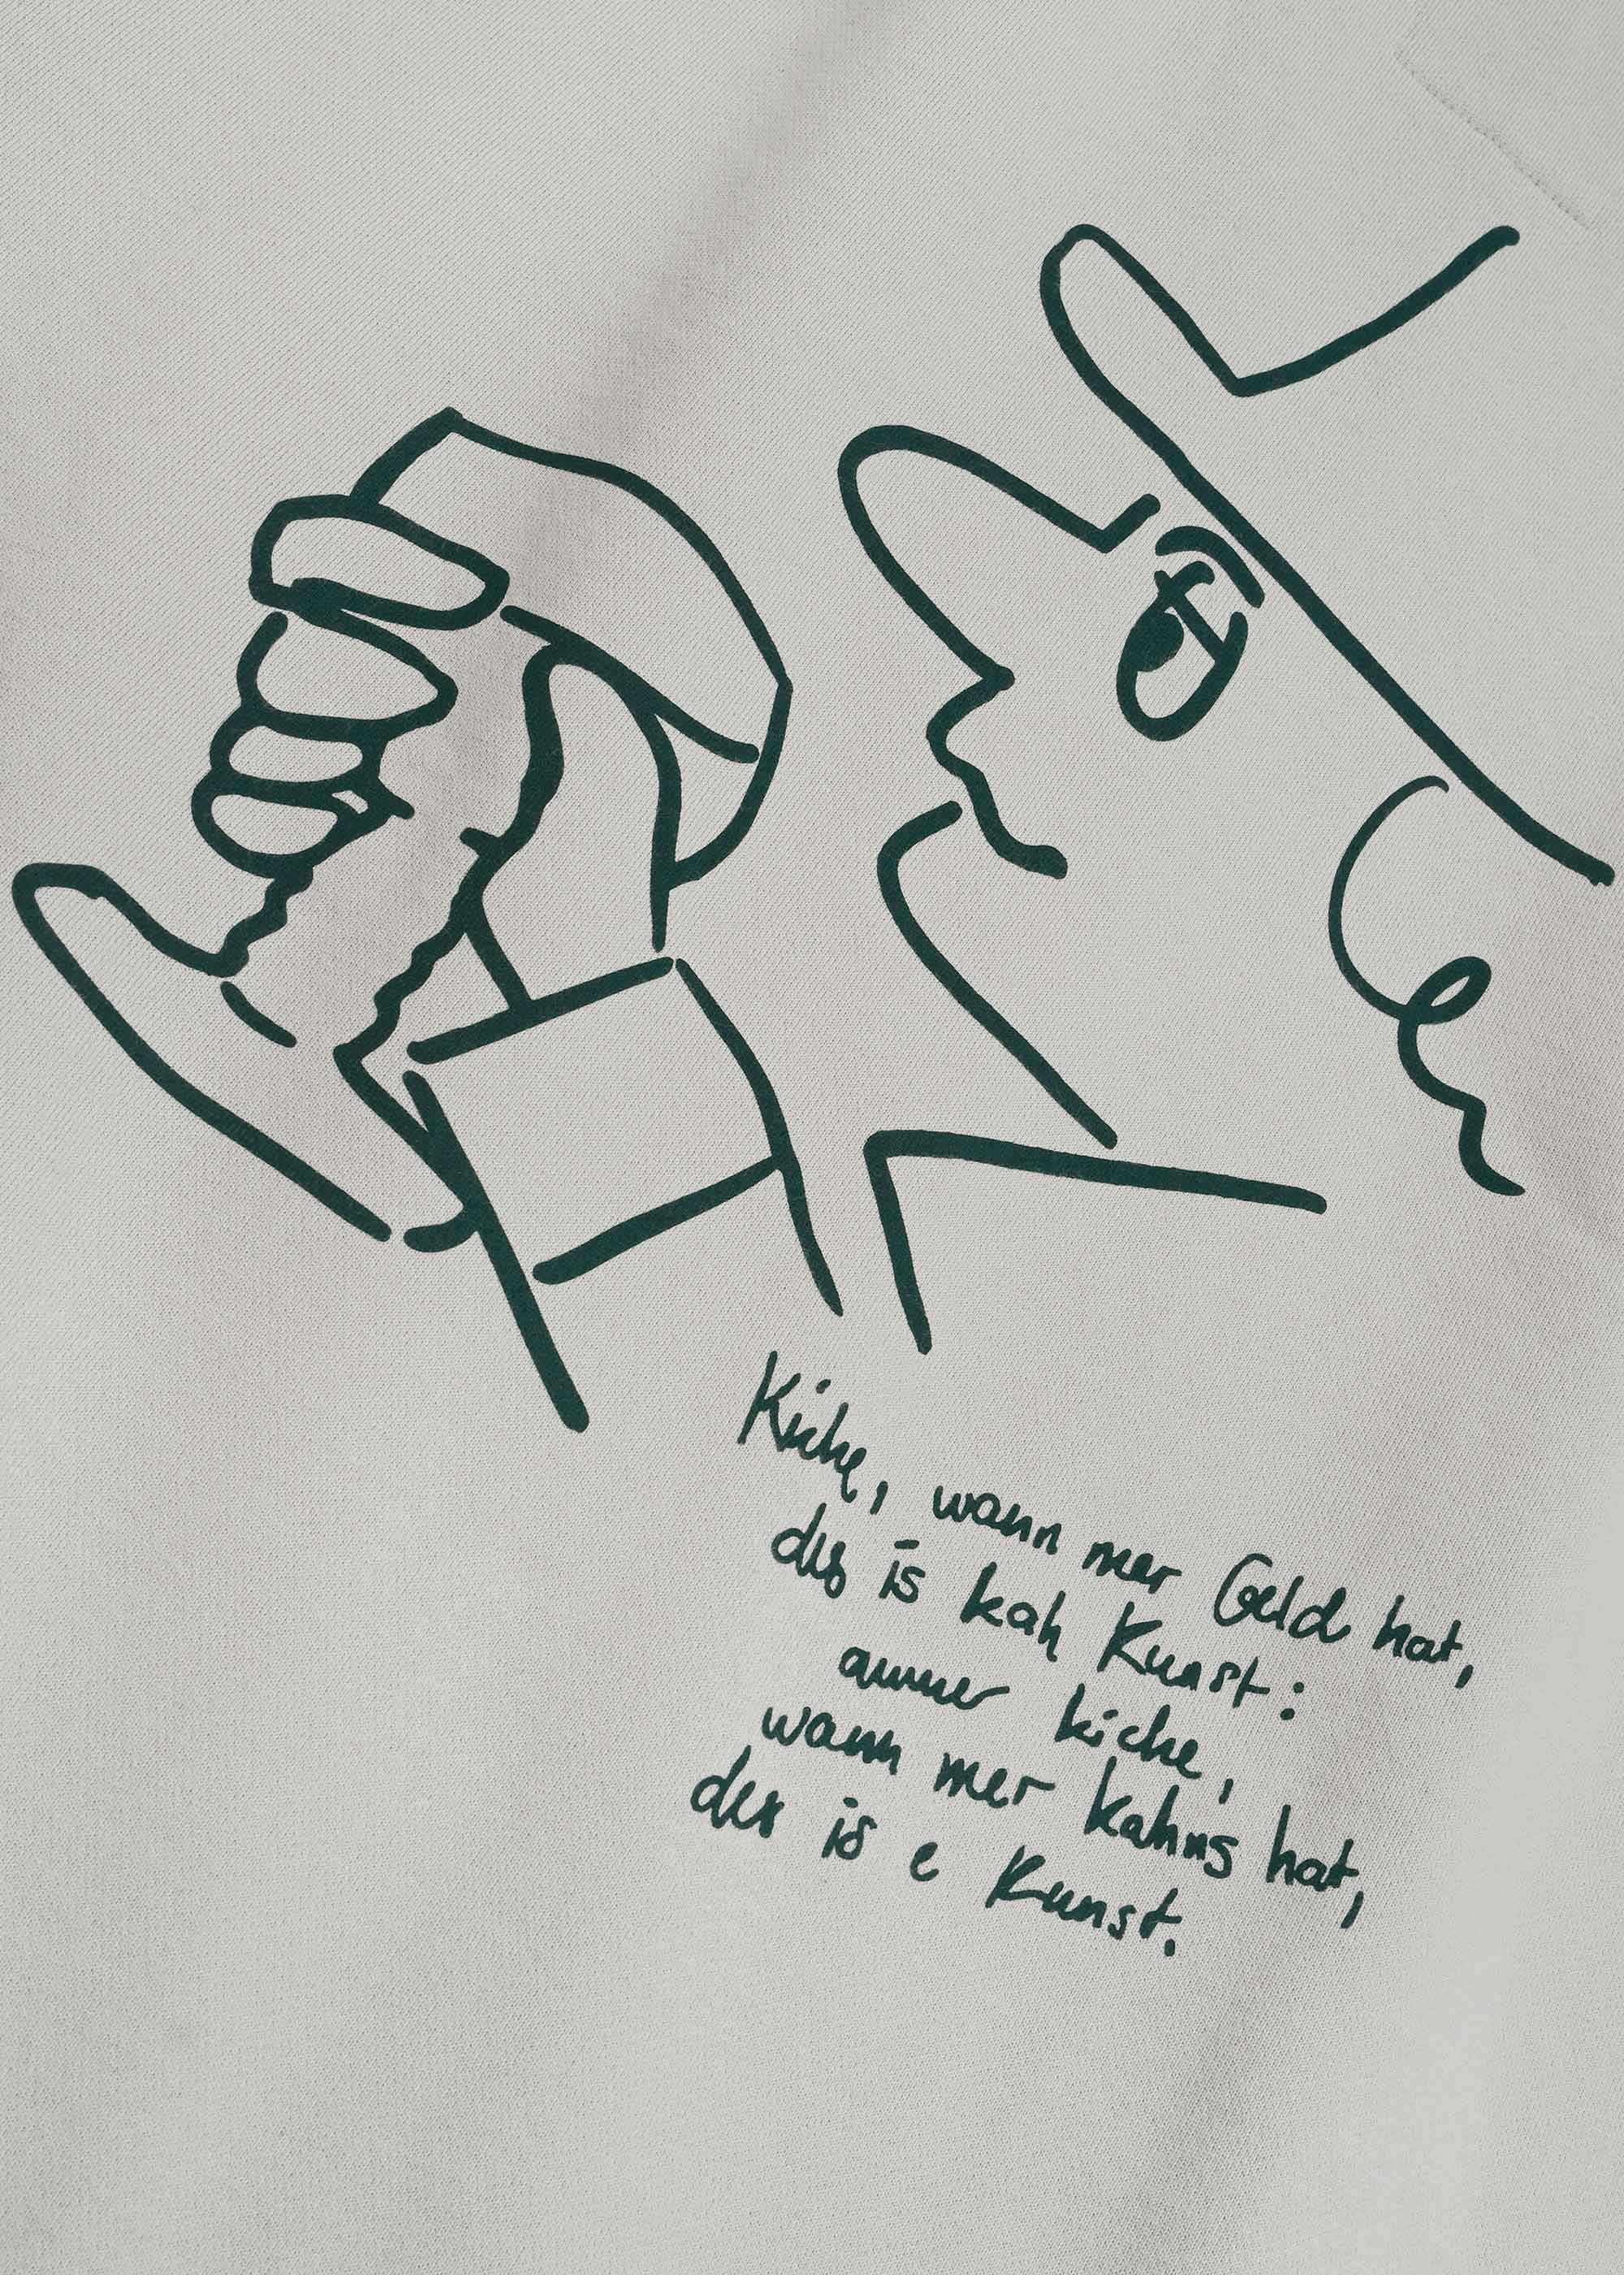 Kiche, wann mer Geld hat,
des is kah Kunst:
awwer kiche,
wann mer kahns hat,
des is e Kunst.